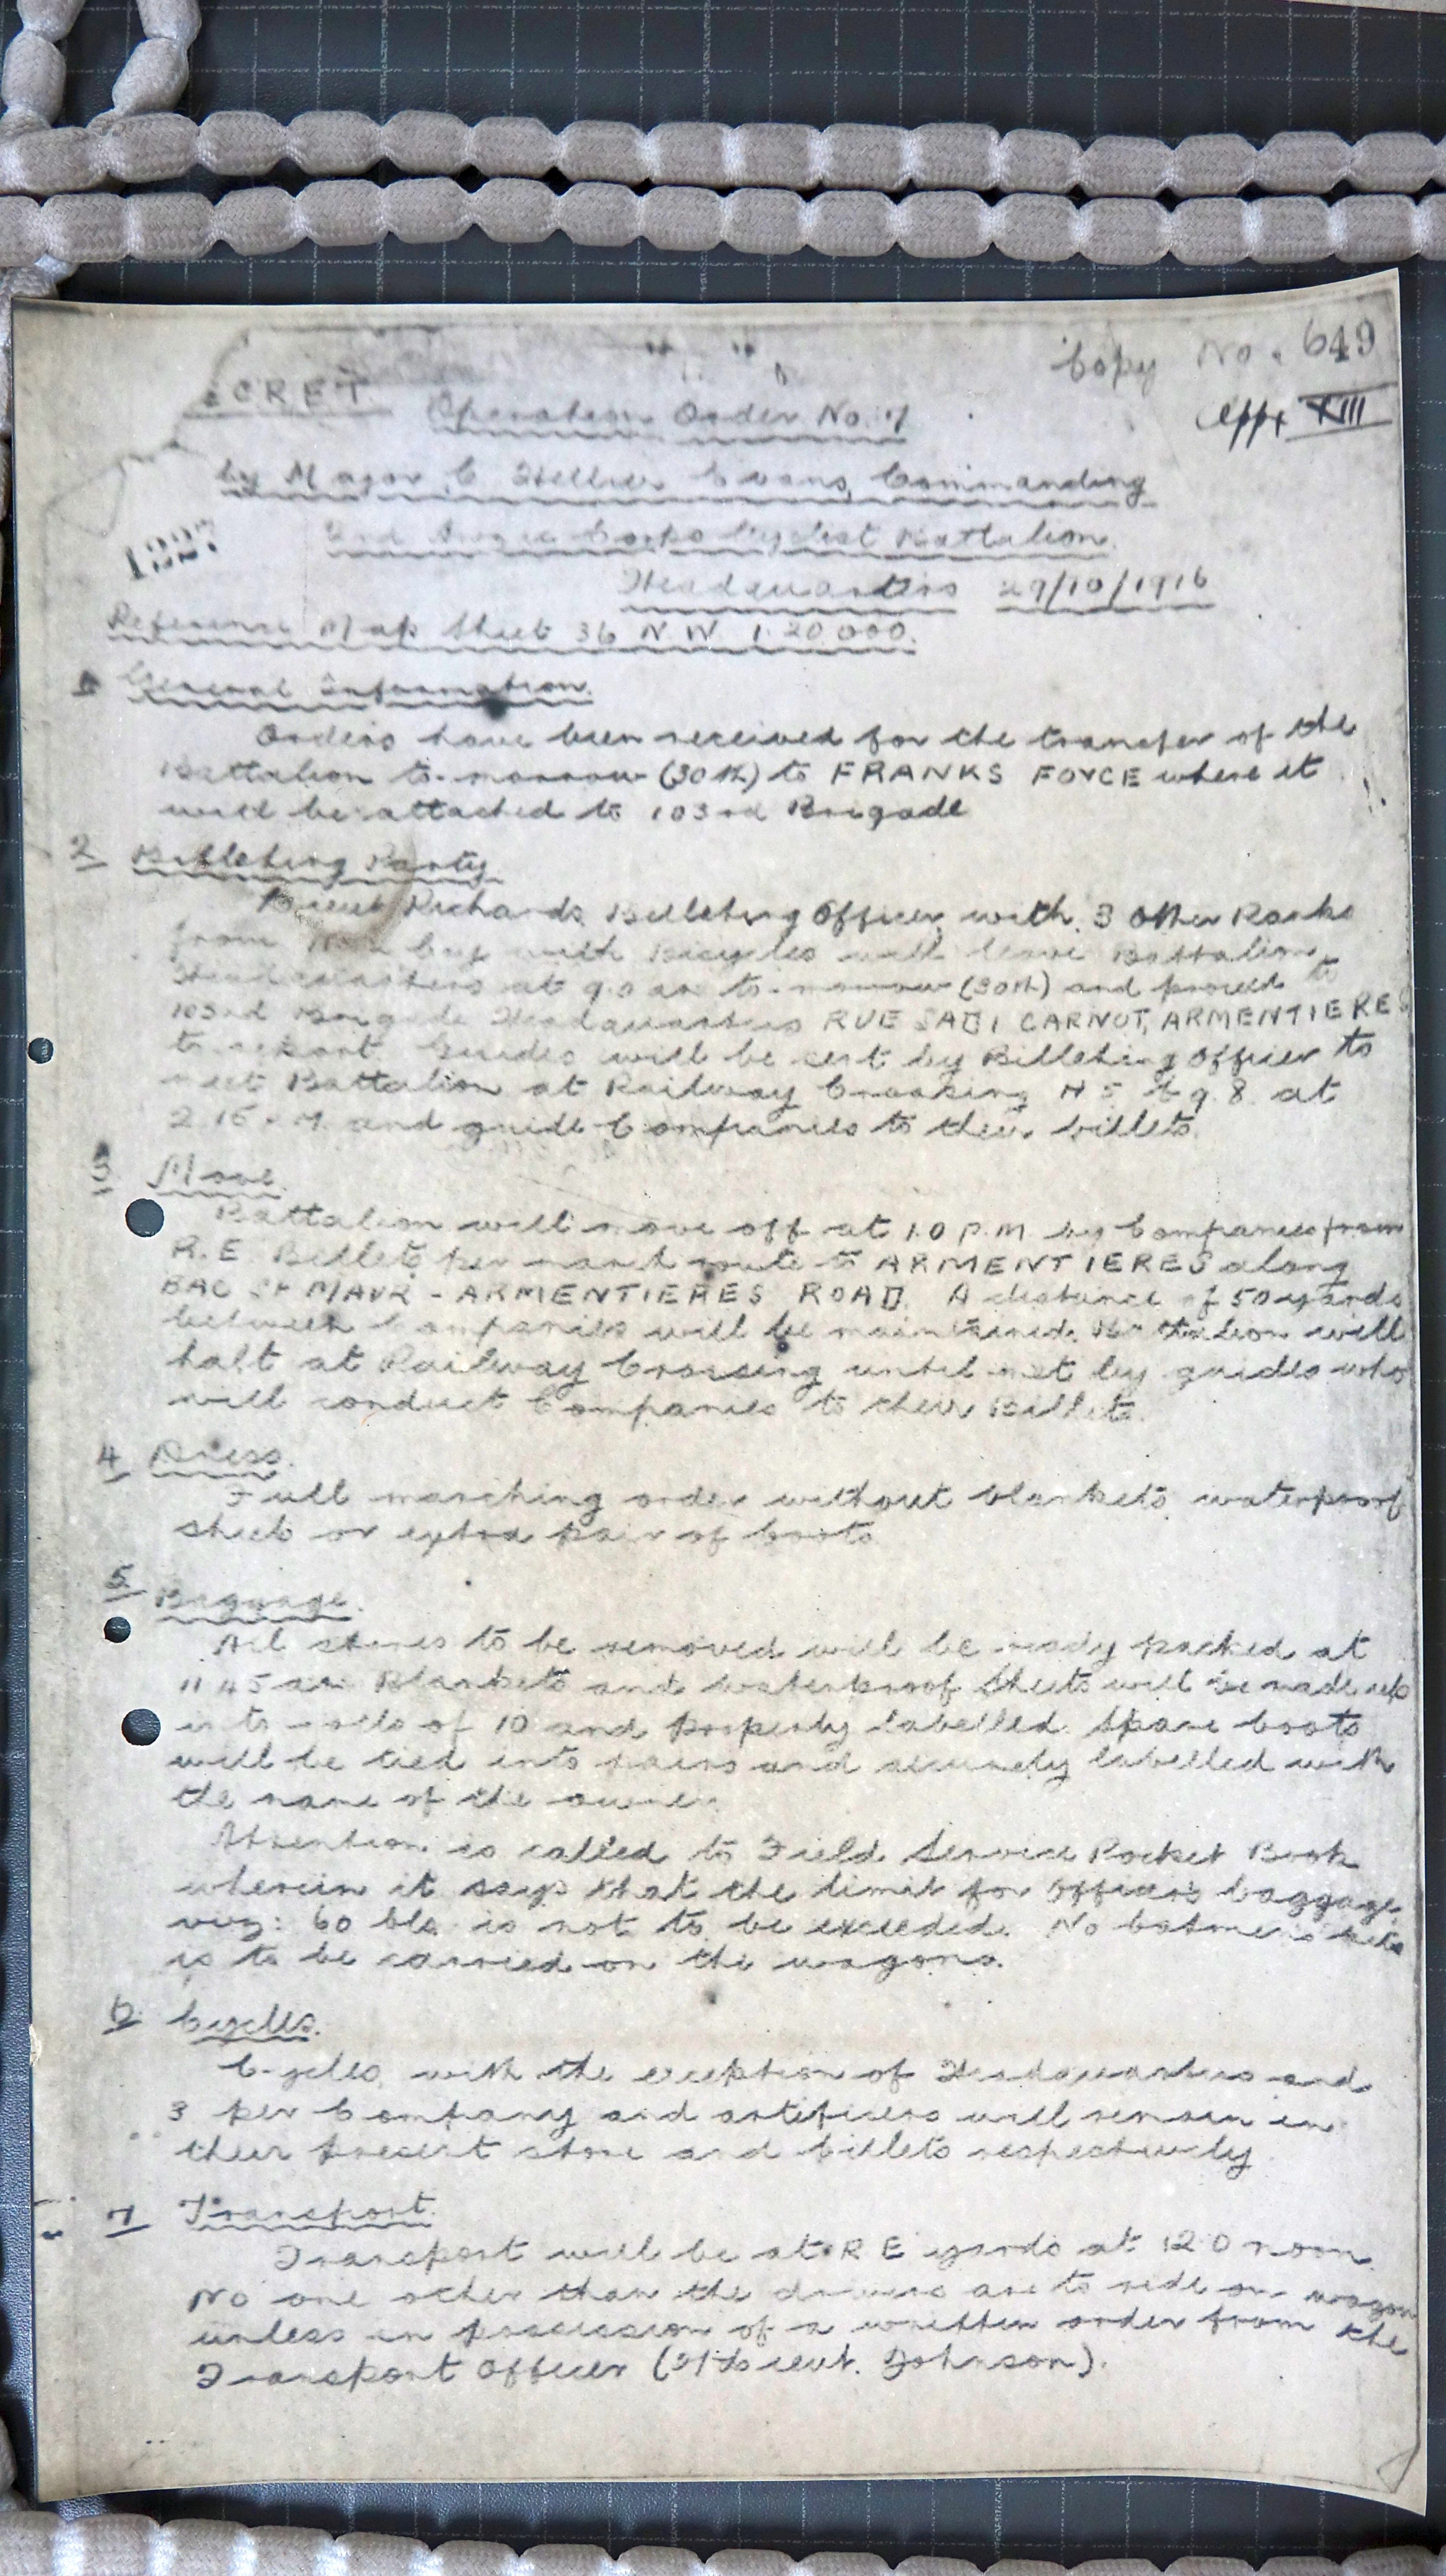 Copy No. 649
SECRET
Operation Order No. 1
Appx XIII
by Major C Hellier Evans, Commanding
2nd Anzac Corps Cyclist Battalion.
1227
Headquarters 29/10/1916
Reference Map Sheet 36 N.W. 1.20 000.
General Information.
Orders have been received for the transfer of the
Battalion to-morrow (30th) to FRANKS FORCE where it
will be attached to 103rd Brigade
2 Billeting Party
Lieut Richards, Billeting Officer, with 3 Other Ranks
from No Coy with Bicycles will leave Battalion
Headquarters at 9.0 am to-morrow (30th) and proceed to
103rd Brigade Headquarters RUE SADI CARNOT, ARMENTIERES
to report. Guides will be sent by Billeting Officer to
meet Battalion at Railway Crossing H 5 b 9.8. at
2 15 P.M. and guide Companies to their billets.
3 Move.
Battalion will move off at 1.0 P.M by Companies from
R.E. Billets per march route to ARMENTIERES along
BAC St MAUR - ARMENTIERES ROAD. A distance of 50 yards
between Companies will be maintained. Battalion will
halt at Railway Crossing until met by guides who
will conduct Companies to their Billets.
4 Dress.
Full marching order without blankets waterproof
sheets or extra pair of boots
5 Baggage.
All stores to be removed will be ready packed at
11 45 am Blankets and waterproof Sheets will be made up
into rolls of 10 and properly labelled. Spare boots
will be tied into pairs and securely labelled with
the name of the owner.
Attention is called to Field Service Pocket Book
wherein it says that the limit for Officers baggage
viz: 60 lbs. is not to be exceeded. No batmen's kits
is to be carried on the wagons.
6 Cycles.
Cycles, with the exception of Headquarters and
3 per Company and artificers will remain in
their present store and billets respectively.
7 Transport.
Transport will be at R E yards at 12 0 noon.
No one other than the drivers are to ride on wagons
unless in possession of a written order from the
Transport Officer (2/Lieut. Johnson).